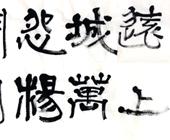 遠上
城萬
怨楊